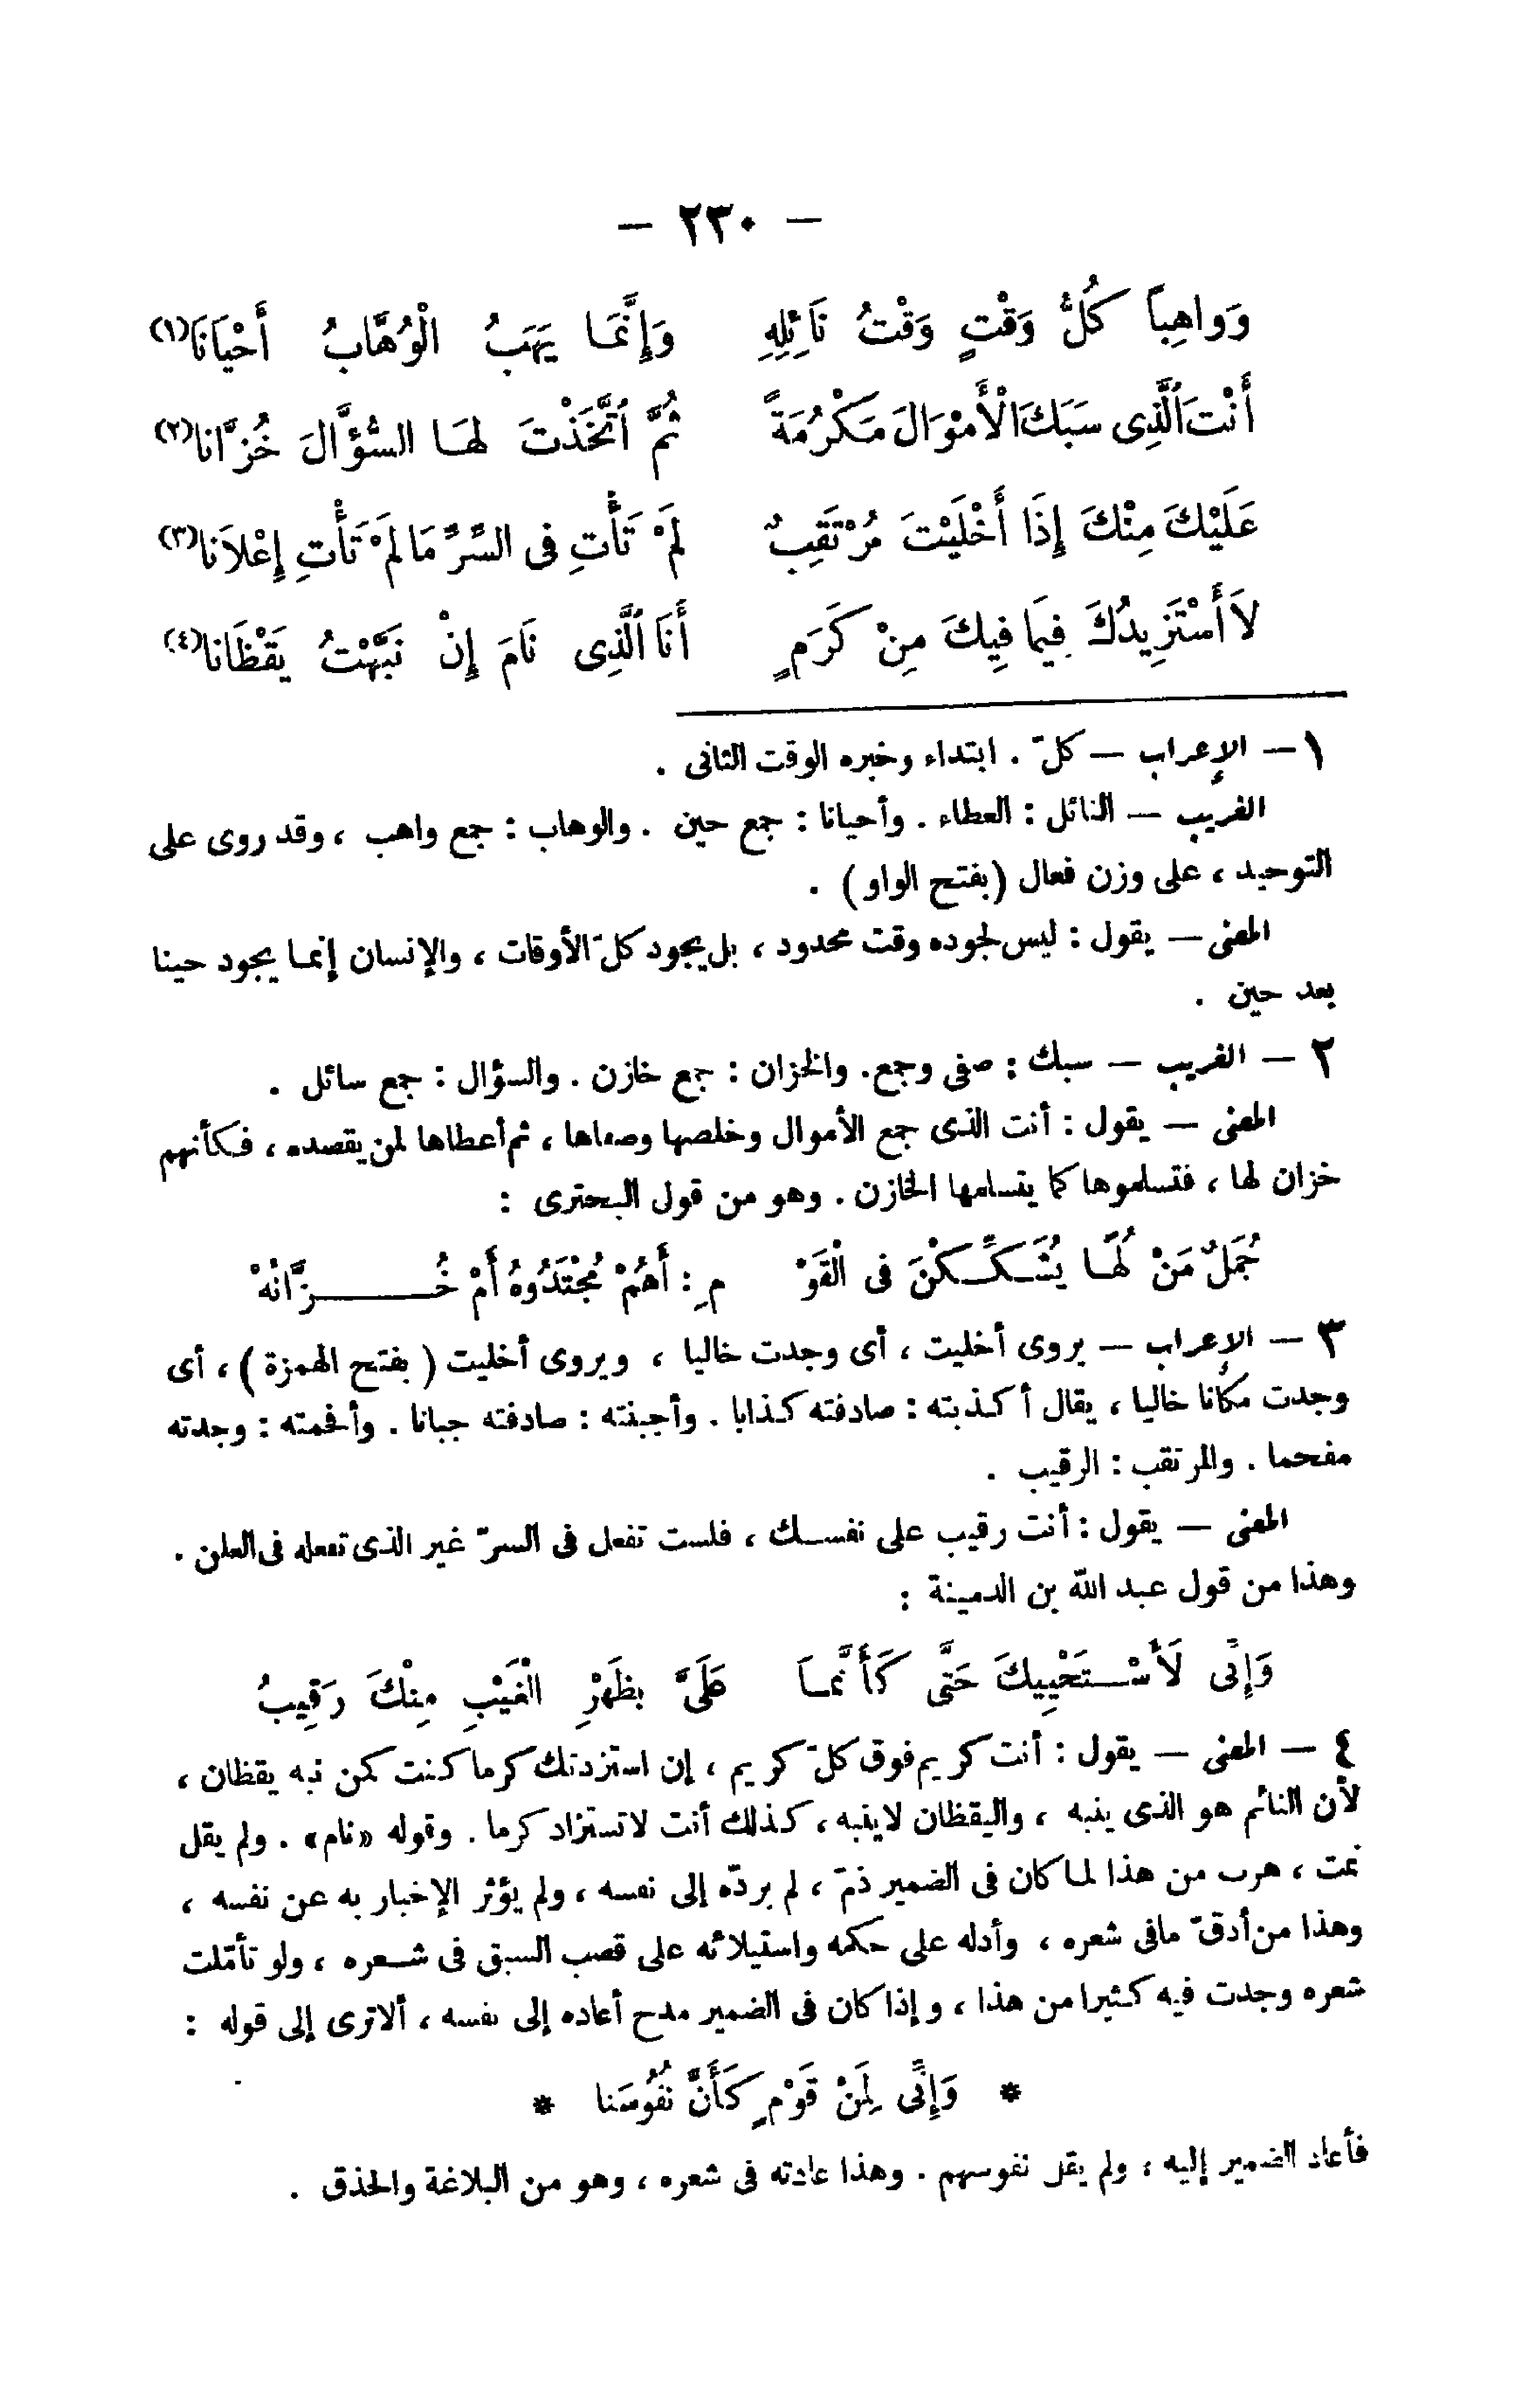 — ٢٣٠ —
وَوَاهِباً كُلُّ وَقْتٍ وَقْتُ نَائِلِهِ وَإِنَّمَا يَهَبُ الْوُهَّابُ أَحْيَانَا(١)
أَنْتَ ٱلَّذِى سَبَكَ الْأَمْوَالَ مَكْرُمَةً ثُمَّ ٱتَّخَذْتَ لَهَا السُّؤَّالَ خُزَّانا(٢)
عَلَيْكَ مِنْكَ إِذَا أَخْلَيْتَ مُرْتَقِبٌ لَمْ تَأْتِ فى السِّرِّ مَا لَمْ تَأْتِ إِعْلاَنا(٣)
لاَ أَسْتَزِيدُكَ فِيمَا فِيكَ مِنْ كَرَمٍ أَنَا ٱلَّذِى نَامَ إِنْ نَبَّهْتُ يَقْظَانا(٤)
١ — الإعراب — كلّ . ابتداء وخبره الوقت الثانى .
الغريب — النائل : العطاء . وأحيانا : جمع حين . والوهاب : جمع واهب ، وقد روى على
التوحيد ، على وزن فعال (بفتح الواو) .
المعنى — يقول : ليس لجوده وقت محدود ، بل يجود كلّ الأوقات ، والإنسان إنما يجود حينا
بعد حين .
٢ — الغريب — سبك : صفى وجمع . والخزان : جمع خازن . والسؤال : جمع سائل .
المعنى — يقول : أنت الذى جمع الأموال وخلصها وصفاها ، ثم أعطاها لمن يقصده ، فكأنهم
خزان لها ، فتسلموها كما يتسلمها الخازن . وهو من قول البحترى :
جُمَلٌ مَنْ لُهًا يُشَكِّكْنَ فى الْقَوْ مِ : أَهُمْ مُجْتَدُوهُ أَمْ خُزَّانُهْ
٣ — الإعراب — يروى أخليت ، أى وجدت خاليا ، ويروى أخليت ( بفتح الهمزة ) ، أى
وجدت مكانا خاليا ، يقال أكذبته : صادفته كذابا . وأجبنته : صادفته جبانا . وأفحمته : وجدته
مفحما . والمرتقب : الرقيب .
المعنى — يقول : أنت رقيب على نفسك ، فلست تفعل فى السرّ غير الذى تفعله فى العلن .
وهذا من قول عبد الله بن الدمينة :
وَإِنِّى لَأَسْتَحْيِيكَ حَتَّى كَأَنَّما عَلَىَّ بِظَهْرِ الْغَيْبِ مِنْكَ رَقِيبُ
٤ — المعنى — يقول : أنت كريم فوق كلّ كريم ، إن استزدتك كرما كنت كمن نبه يقظان ،
لأن النائم هو الذى ينبه ، واليقظان لاينبه ، كذلك أنت لاتستزاد كرما . وقوله «نام» . ولم يقل
نمت ، هرب من هذا لما كان فى الضمير ذمّ ، لم يردّه إلى نفسه ، ولم يؤثر الإخبار به عن نفسه ،
وهذا من أدقّ مافى شعره ، وأدله على حكمه واستيلائه على قصب السبق فى شعره ، ولو تأمّلت
شعره وجدت فيه كثيرا من هذا ، وإذا كان فى الضمير مدح أعاده إلى نفسه ، ألا ترى إلى قوله :
* وَإِنِّى لَمِنْ قَوْمٍ كَأَنَّ نُفُوسَنا *
فأعاد الضمير إليه ، ولم يقل نفوسهم . وهذا عادته فى شعره ، وهو من البلاغة والحذق .